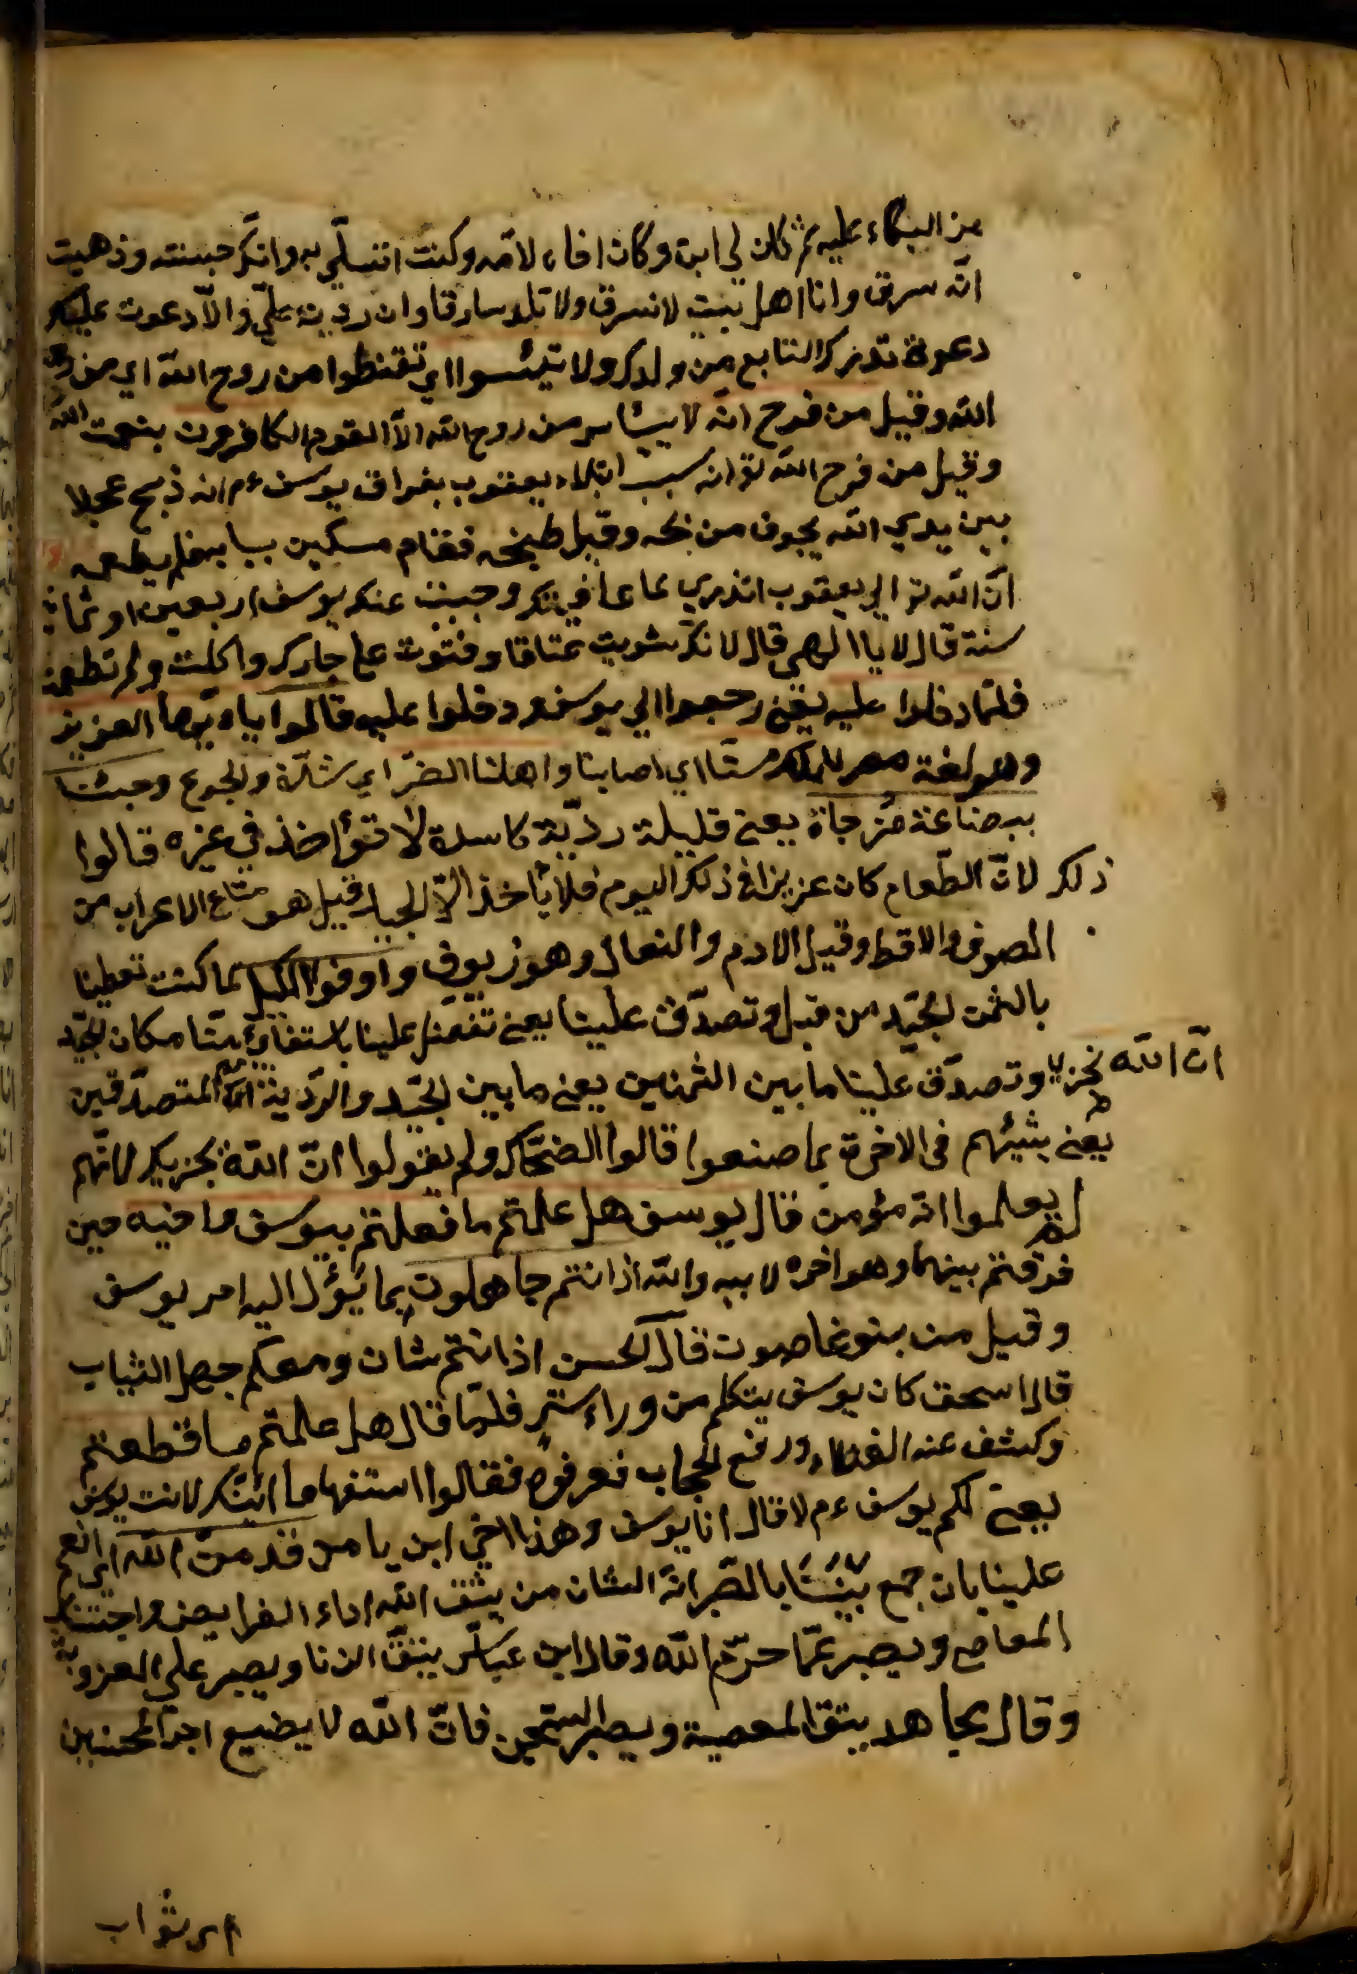 من البكاء عليه ثم كان لي ابن وكان اخاه لامه وكنت اتسلّي به وانكر حبسته وذهبت
انّه سرق وانا اهل بيت لا نسرق ولا نلد سارقا وان رددته عليّ والّا دعوت عليكر
دعوة تدرك السابع من ولدكر ولا تيئسوا اي تقنطوا من روح اللّه اي من
اللّه وقيل من فرح انّه لا ييئاس من روح اللّه الّا القوم الكافرون
وقيل من فرح اللّه تو انه سبب ابتلاء يعقوب بفراق يوسف ءم انه ذبح عجلا
بين يدي اللّه يخوف من وقبل طبخه فقام مسكين ببابه فلم يطعمه
انّ اللّه تو الي يعقوب اتدري لما عاقبتكر وحبست عنكر يوسف اربعين او ثمانين
سنة قال لا يا الهي قال لانكر شويت عتاقا وقترت على جاركر واكلت ولم تطعمه
فلمّا دخلوا عليه يعني رجعوا الي يوسف ودخلوا عليه قالوا يا ايّها العزيز
وهو لغة مصر للملكر مسّنا اي اصابنا واهلنا الضرّ اي شدّة والجوع وجئنا
ببضاعة مُزجاة يعني قليلة رديّة كاسدة لا تؤاخذ في غيره قالوا
ذلكر لانّ الطّعام كان عزيزا في ذلكر اليوم فلا يأخذ الّا الجياد قيل هو متاع الاعراب من
الصوف والاقط وقيل الادم والنعال وهو زيوف واوفوا الكيل كما كنت تعطينا
بالثمن الجيّد من قبل وتصدّق علينا يعني تفضّل علينا باستيفائ منّا مكان الجيّد
وتصدّق علينا ما بين الثمنين يعني ما بين الجيّد والرّدية انّ اللّه يجزي المتصدّقين
يعني يثيبهم في الاخرة بما صنعوا قالوا الضحّاكر ولم يقولوا انّ اللّه يجزيكر لانّهم
لم يعلموا انّه مؤمن قال يوسف هل علمتم ما فعلتم بيوسف واخيه حين
فرقتم بينهما وهو اخوه لابيه واللّه اذ انتم جاهلون بما يؤل اليه امر يوسف
وقيل من قال الحسن اذ انتم شبان ومعكم جهل الشباب
قال اسحق كان يوسف يتكلم من وراء ستر فلمّا قال هل علمتم ما قطعتم
وكشف عنه الغطاء ورفع الحجاب فعرفوه فقالوا استفهاما ائنّكر لانت يوسف
يعني لكم يوسف ءم لا قال انا يوسف وهذا اخي ابن يامن قد منّ اللّه اي انعم
علينا بان جمع بيننا بالصّبر انّه الشان من يتّق اللّه اداء الفرايض واجتناب
المعاصي ويصبر عمّا حرّم اللّه وقال ابن عبّاس يتق الزنا ويصبر علي العزوبة
وقال مجاهد يتق المعصية ويصبر السجن فانّ اللّه لا يضيع اجر المحسنين